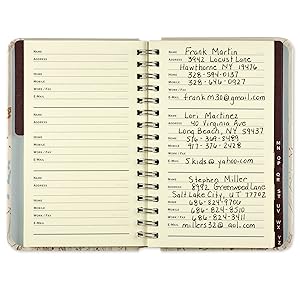 NAME
ADDRESS
HOME
MOBILE
WORK / FAX
E-MAIL
NAME
ADDRESS
HOME
MOBILE
WORK / FAX
E-MAIL
NAME
ADDRESS
HOME
MOBILE
WORK / FAX
E-MAIL
NAME Frank Martin
ADDRESS 3942 Locust Lane
Hawthorne NY 19476
HOME 328-594-0137
MOBILE 328-646-0927
WORK / FAX
E-MAIL frankm30@gmail.com
NAME Lori Martinez
ADDRESS 40 Virginia Ave
Long Beach, NY 59437
HOME 516-369-2489
MOBILE 917-376-2428
WORK / FAX
E-MAIL 5kids@yahoo.com
NAME Stephen Miller
ADDRESS 8992 Greenwood Lane
Salt Lake City, UT 77702
HOME 686-824-9706
MOBILE 686-824-8510
WORK / FAX 686-824-3411
E-MAIL millers32@aol.com
MN
OP
QR
ST
UV
WX
YZ